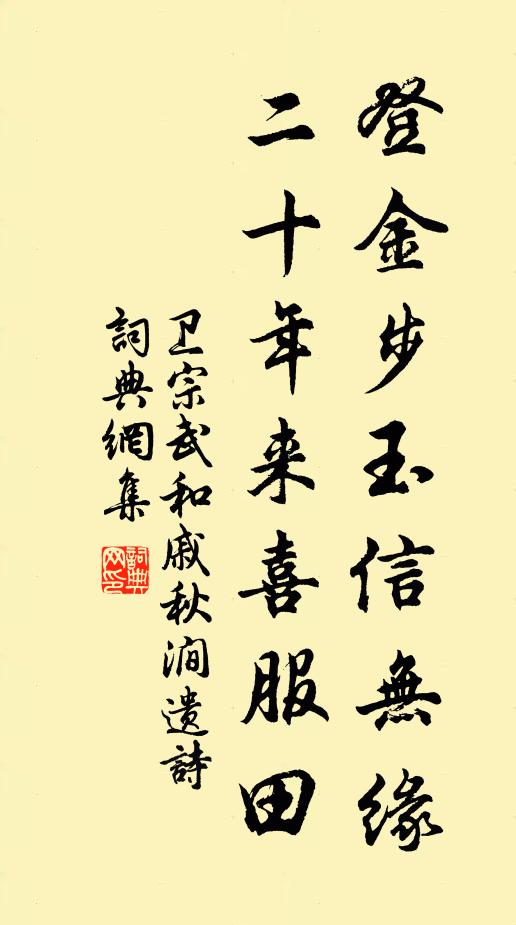 登金步玉信無緣
二十年来喜服田
卫宗武和戚秋澗遗詩
詞典網集
詞典网印